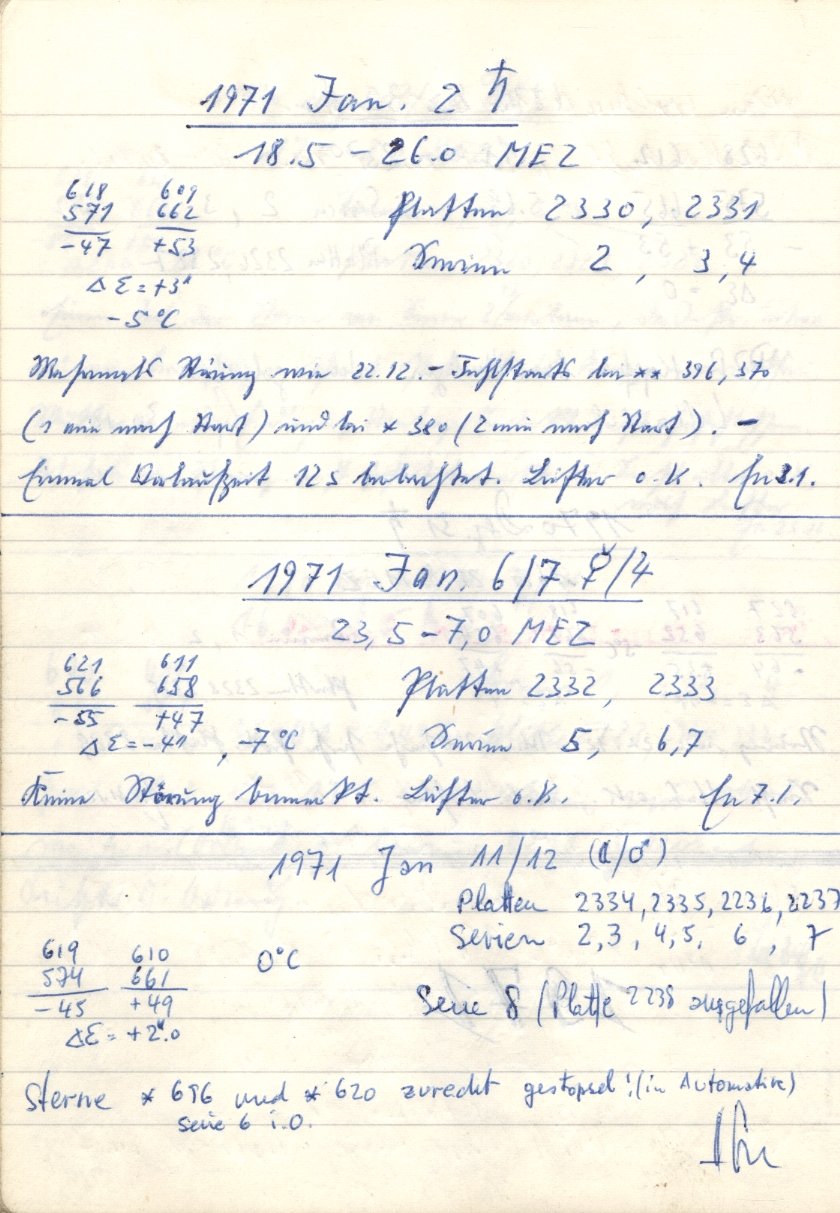 1971 Jan. 2 ♄
18.5 – 26.0 MEZ
618 609
571 662 Platten 2330, 2331
-47 +53 Serien 2, 3, 4
Δ Ɛ = +3"
-5°C
Mehrmals Störung wie 22.12. – Fehlstarts bei ** 396, 370
(1 min nach Start) und bei * 380 (2 min nach Start). –
Einmal Vorlaufzeit 12 s beobachtet. Lüfter o.K. 3.1.
1971 Jan. 6/7 ☿/♃
23,5 – 7,0 MEZ
621 611
566 658 Platten 2332, 2333
-55 +47 Serien 5, 6,7
Δ Ɛ = -4", -7°C
Keine Störung bemerkt. Lüfter o.K. 7.1.
1971 Jan 11/12 (☾/♂)
Platten 2334, 2335, 2236, 2237
Serien 2,3, 4,5, 6, 7
619 610 0°C
574 661
-45 +49 Serie 8 (Platte 2238 ausgefallen)
Δ Ɛ = +2".0
Sterne * 696 und * 620 zurecht gestöpselt! (in Automatik)
Serie 6 i.O.